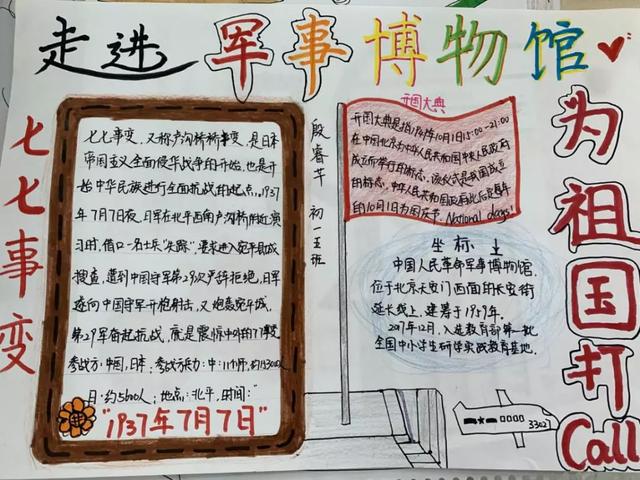 走进军事博物馆
七七事变
七七事变，又称卢沟桥事变，是日本
帝国主义全面侵华战争的开始，也是开
始中华民族进行全面抗战的起点。1937
年7月7日夜，日军在北平西南卢沟桥附近演
习时，借口一名士兵"失踪"，要求进入宛平县城
搜查，遭到中国守军第29军严辞拒绝，日军
遂向中国守军开枪射击，又炮轰宛平城。
第29军奋起抗战，就是震惊中外的77事变
参战方：中国，日本，参战兵力：中：
日：约5600人；地点：北平，时间："
"1937年7月7日"
殷睿华 初一五班
开国大典
开国大典是指1949年10月1日15:00-21:00
在中国北京为中华人民共和国中央人民政府
成立所举行的标志，该仪式是我国成立
的标志，中华人民共和国政府此后定每年
的10月1日为国庆节，National days!
坐标
中国人民革命军事博物馆，
位于北京天安门西面的长安街
延长线上，建筑于1959年。
2017年12月，入选教育部第一批
全国中小学生研学实践教育基地。
3302
为祖国打Call